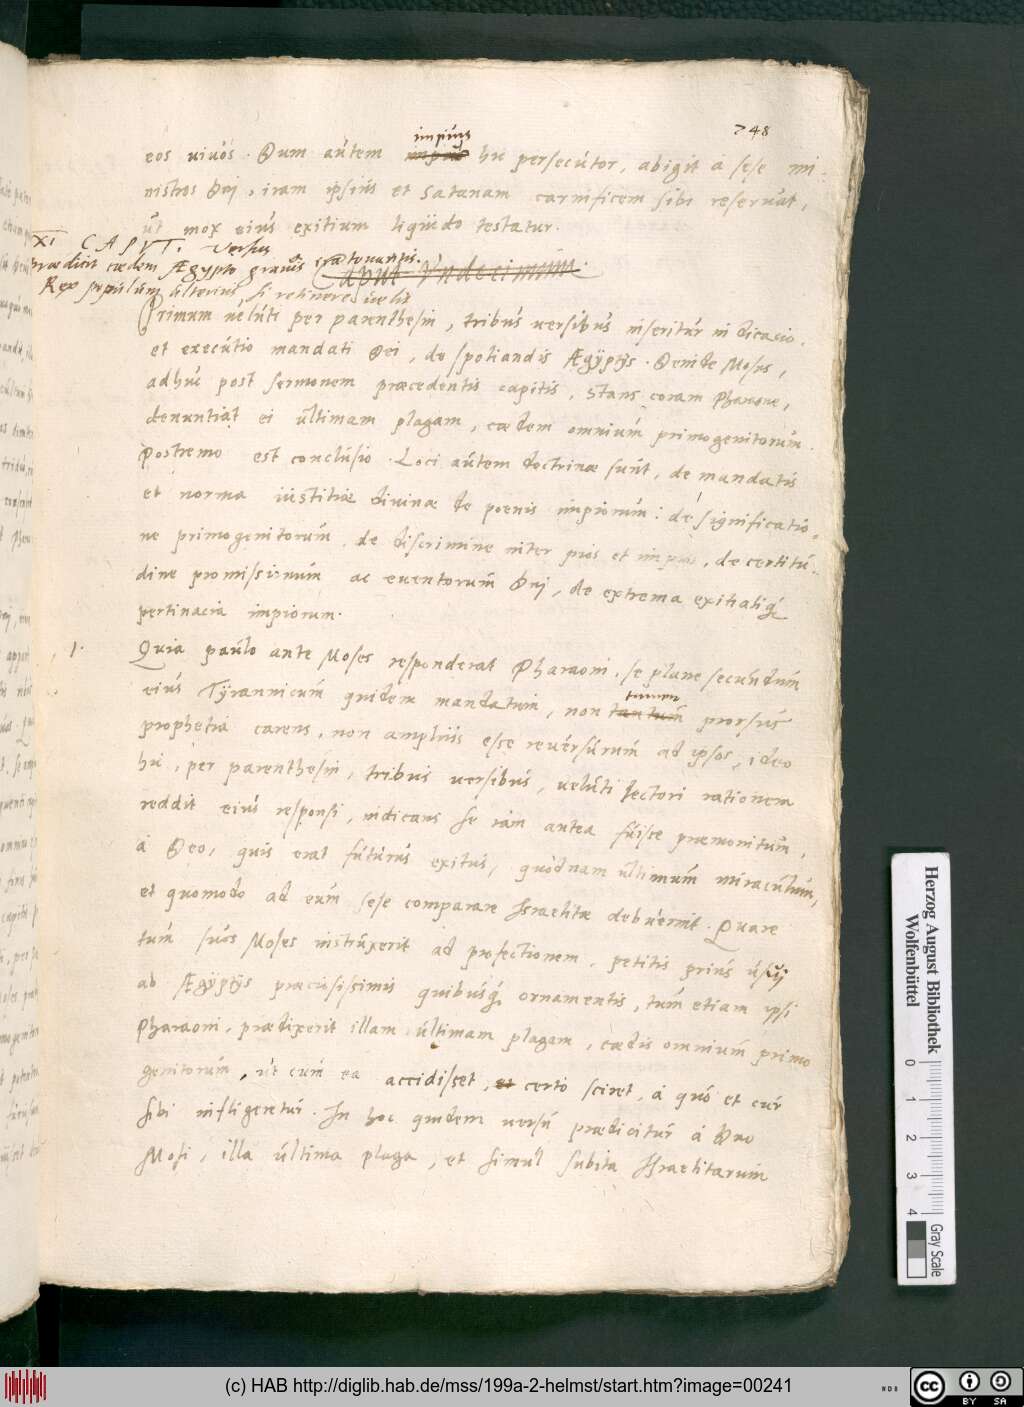 748
impius
eos uiuos. Dum autem impius hic persecutor, abigit à sese mi-
nistros Dnj, iram ipsius et Satanam carnificem sibi reseruat,
ut mox eius exitium liquido testatur.
XI CAPVT. Versus
Prædicit cædem Ægypto grauis
Rex populum ulterius si retinere uelit
Caput Vndecimum.
Primum uelúti per parenthesin, tribus uersibus inseritur indicatio.
et executio mandati Dei, de spoliandis Ægÿptijs. Deinde Moses,
adhuc post sermonem præcedentis capitis, stans coram Pharaone,
denuntiat ei ultimam plagam, cædem omnium primogenitorum.
Postremo est conclusio. Loci autem doctrinæ sunt, de mandatis
et norma iustitiæ diuinæ de poenis impiorum: de significatio-
ne primogenitorum, de discrimine inter pios et impios, de certitu-
dine promissionum ac euentorum Dnj, de extrema exitialiq́
pertinacia impiorum.
1. Quia paulo ante Moses responderat Pharaoni, se plane secundum
eius Tyrannicum quidem mandatum, non tantum prorsus
tamen
prophetia carens, non amplius esse reuersurum ad ipsos, ideo
hic, per parenthesin, tribus uersibus, ueluti lectori rationem
reddit eius responsi, indicans se iam antea fuisse præmonitum,
à Deo, quis erat futurus exitus, quodnam ultimum miraculum,
et quomodo ad eum sese comparare Israelitæ debuerint. Quare
tum suos Moses instruxerit ad profectionem, petitis prius
ab Ægÿptijs præciosissimis quibusq́ ornamentis, tum etiam ipsi
Pharaoni, prædixerit illam ultimam plagam, cædis omnium primo
genitorum, ut cum ea accidisset, et certo sciret, à quo et cur
sibi infligeretur. In hoc quidem uersu prædicitur à Deo
Mosi, illa ultima plaga, et simul subita Israelitarum
Herzog August Bibliothek
Wolfenbüttel
0 1 2 3 4
Gray Scale
(c) HAB http://diglib.hab.de/mss/199a-2-helmst/start.htm?image=00241
cc BY SA